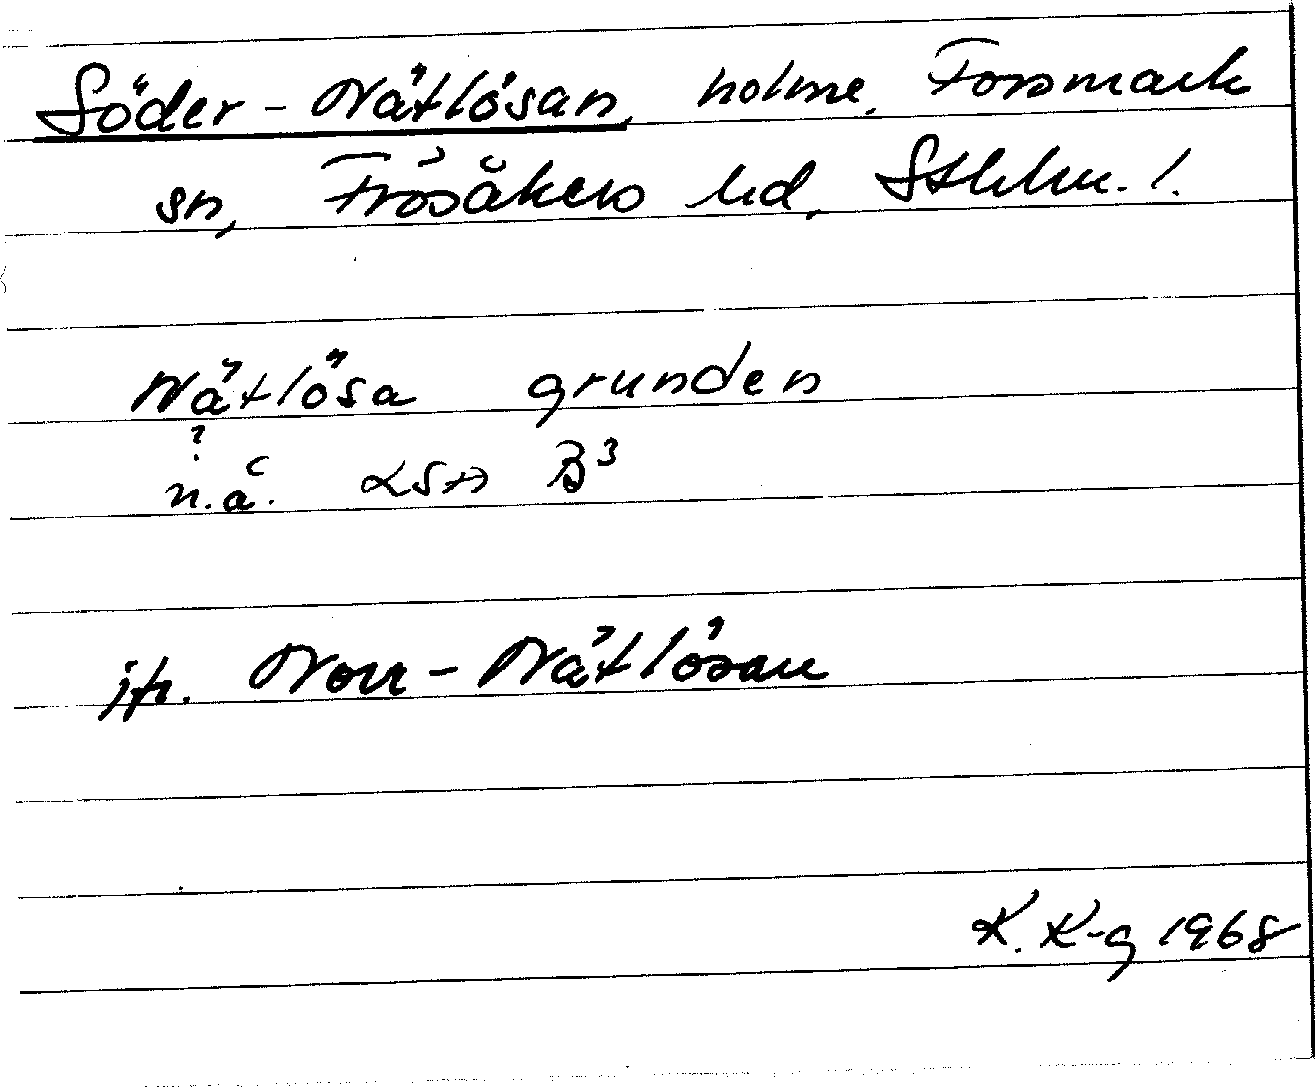 Söder-Nätlösan, holme, Forsmark
sn, Frösåkers hd, Sthlm. l.
Nätlösa grunden
?
n.å. LSA B3
jfr. Norr-Nätlösan
K. K-g 1968